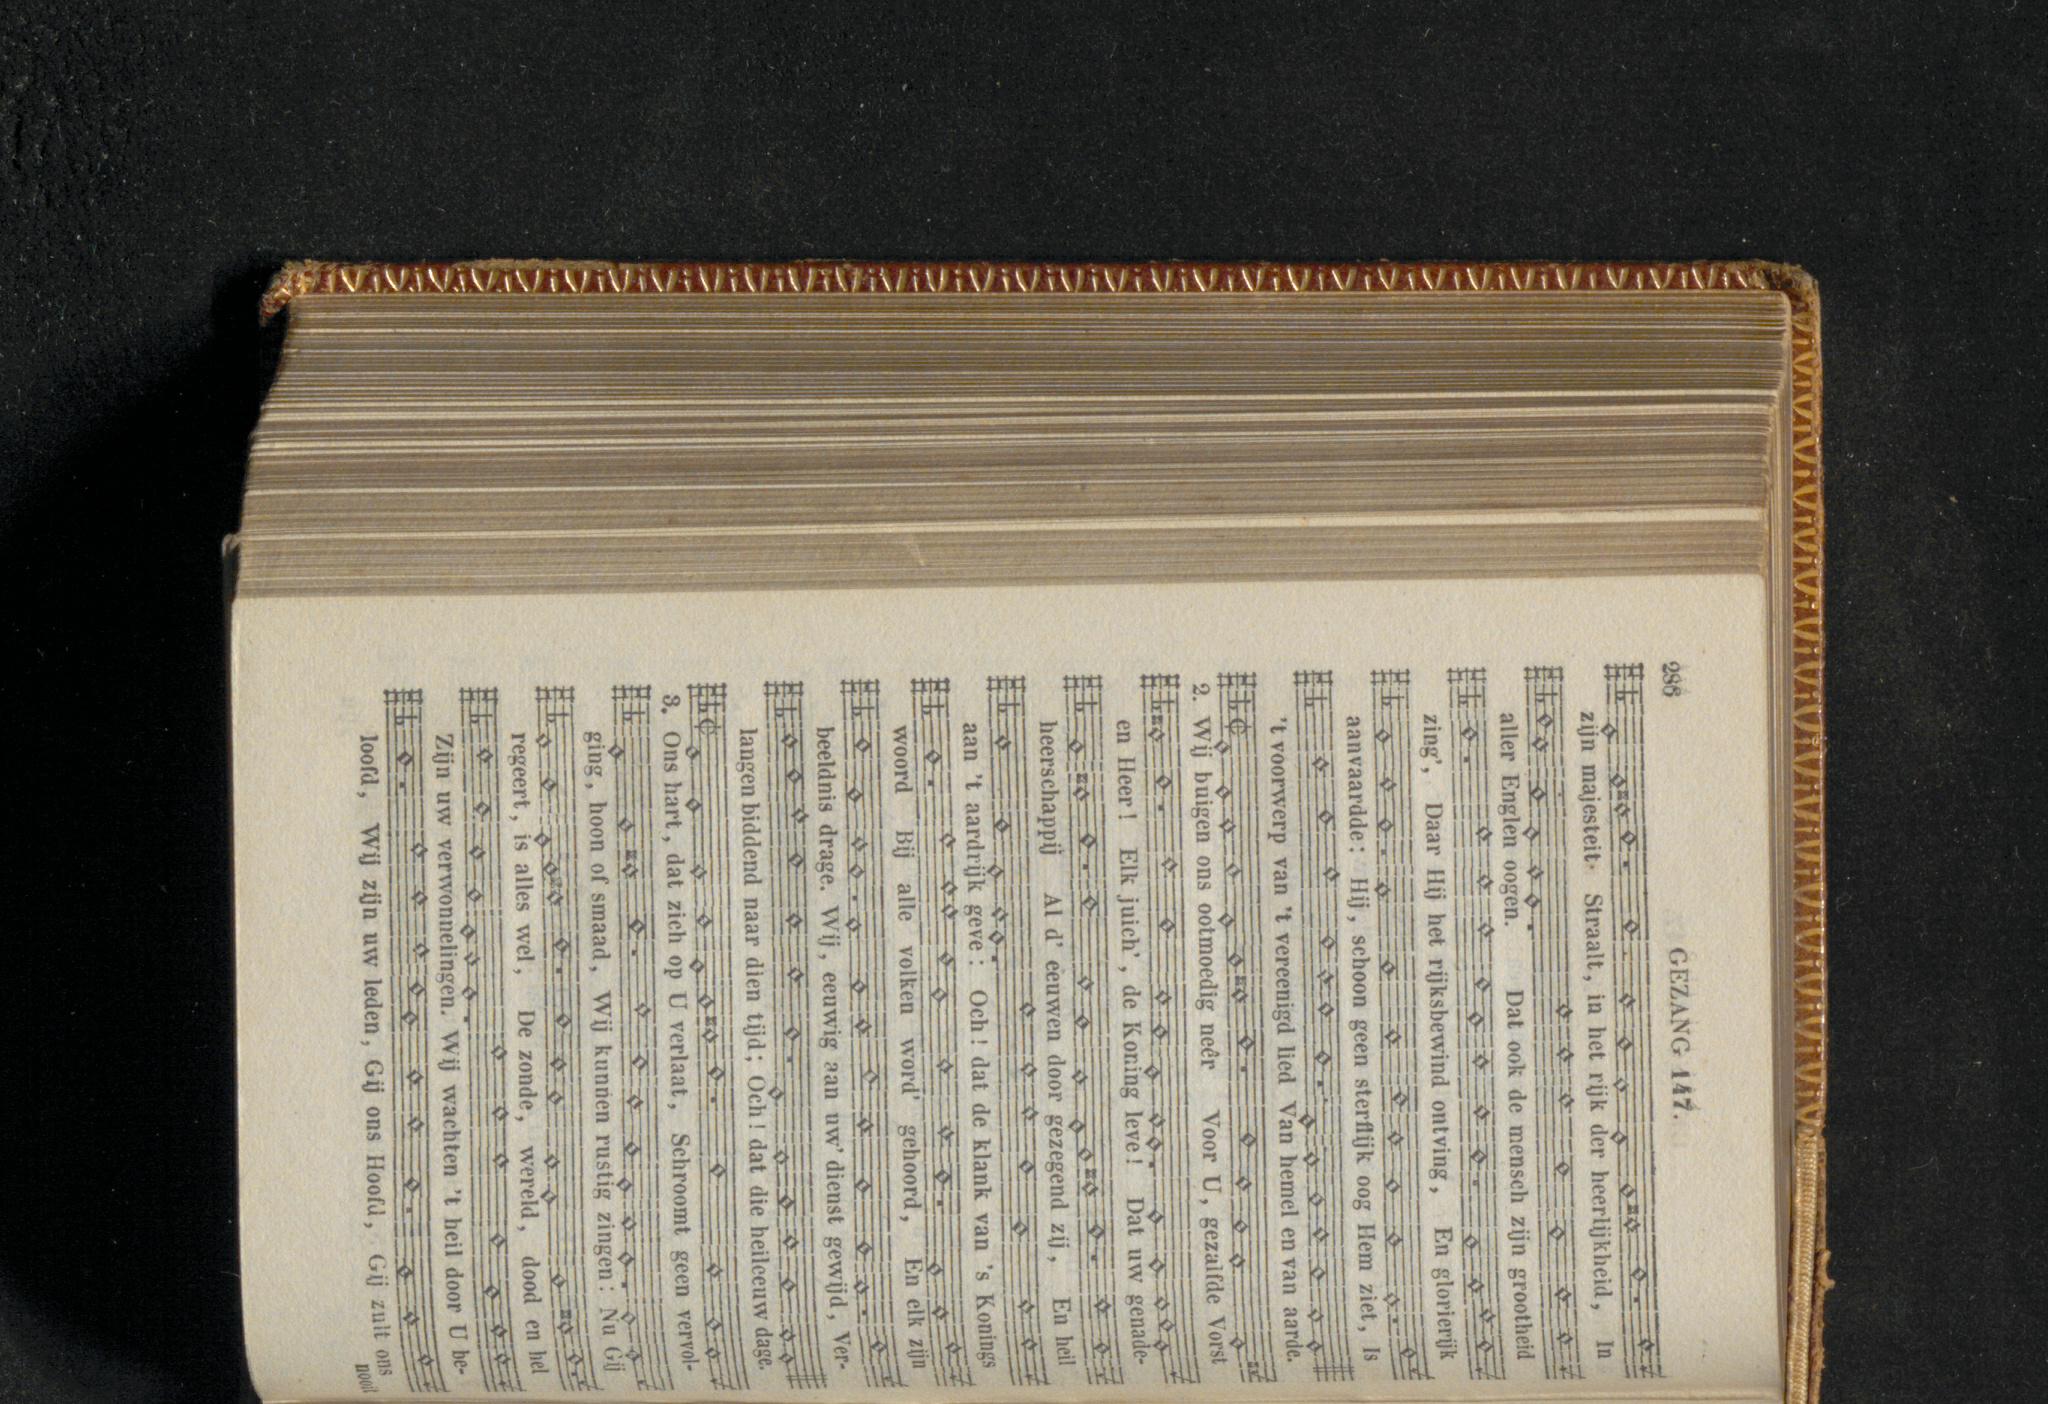 286
GEZANG 147.
zijn majesteit. Straalt, in het rijk der heerlijkheid, In
aller Englen oogen. Dat ook de mensch zijn grootheid
zing', Daar Hij het rijksbewind ontving, En glorierijk
aanvaardde: Hij, schoon geen sterflijk oog Hem ziet, Is
't voorwerp van 't vereenigd lied Van hemel en van aarde.
2. Wij buigen ons ootmoedig neêr Voor U, gezalfde Vorst
en Heer! Elk juich', de Koning leve! Dat uw genade-
heerschappij Al d' eeuwen door gezegend zij, En heil
aan 't aardrijk geve: Och! dat de klank van 's Konings
woord Bij alle volken word' gehoord, En elk zijn
beeldnis drage. Wij, eeuwig aan uw' dienst gewijd, Ver-
langen biddend naar dien tijd; Och! dat die heileeuw dage.
3. Ons hart, dat zich op U verlaat, Schroomt geen vervol-
ging, hoon of smaad, Wij kunnen rustig zingen: Nu Gij
regeert, is alles wel, De zonde, wereld, dood en hel
Zijn uw verwonnelingen. Wij wachten 't heil door U be-
loofd, Wij zijn uw leden, Gij ons Hoofd, Gij zult ons
nooit